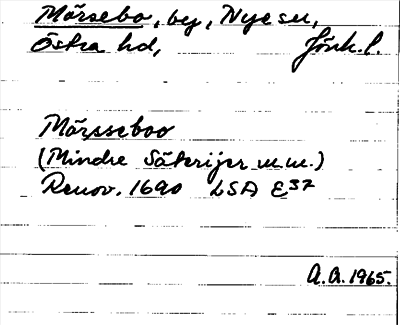 Mörsebo, by, Nye sn,
Östra hd, Jönk. l.
Mörsseboo
(Mindre Säterijer m.m.)
Renov. 1690 LSA E37
A.A. 1965.